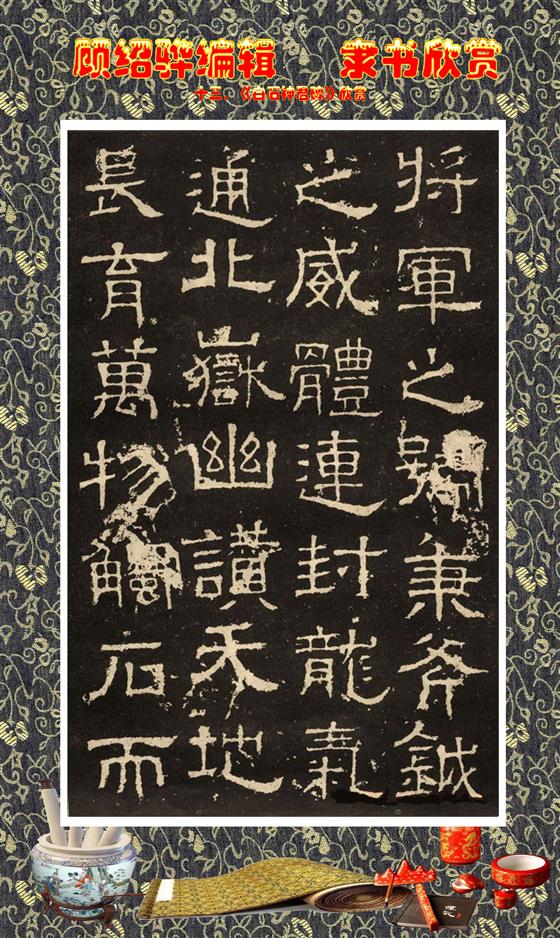 顾绍骅编辑 隶书欣赏
十三、《白石神君碑》欣赏
将軍之號秉斧鉞
之威體連封龍氣
通北嶽幽讃天地
長育萬物觸石而